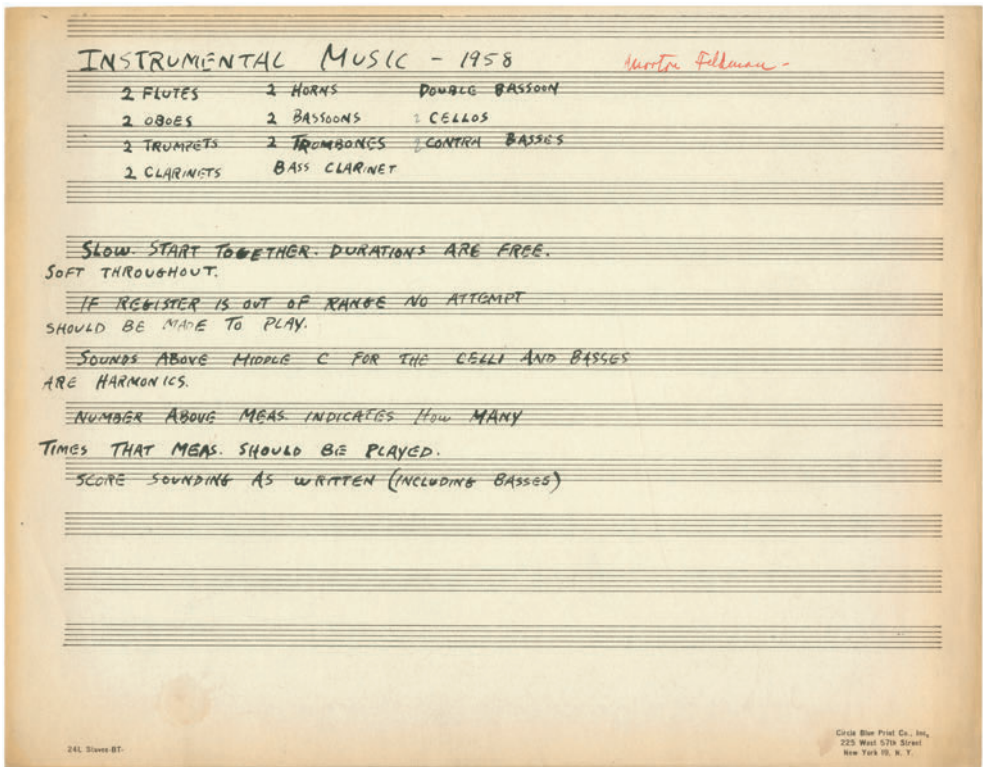 INSTRUMENTAL MUSIC - 1958 Morton Feldman -
2 FLUTES 2 HORNS DOUBLE BASSOON
2 OBOES 2 BASSOONS 2 CELLOS
2 TRUMPETS 2 TROMBONES 2 CONTRA BASSES
2 CLARINETS BASS CLARINET
SLOW. START TOGETHER. DURATIONS ARE FREE.
SOFT THROUGHOUT.
IF REGISTER IS OUT OF RANGE NO ATTEMPT
SHOULD BE MADE TO PLAY.
SOUNDS ABOVE MIDDLE C FOR THE CELLI AND BASSES
ARE HARMONICS.
NUMBER ABOVE MEAS. INDICATES HOW MANY
TIMES THAT MEAS. SHOULD BE PLAYED.
SCORE SOUNDING AS WRITTEN (INCLUDING BASSES)
24L Staves-BT-
Circle Blue Print Co., Inc,
225 West 57th Street
New York 19, N. Y.